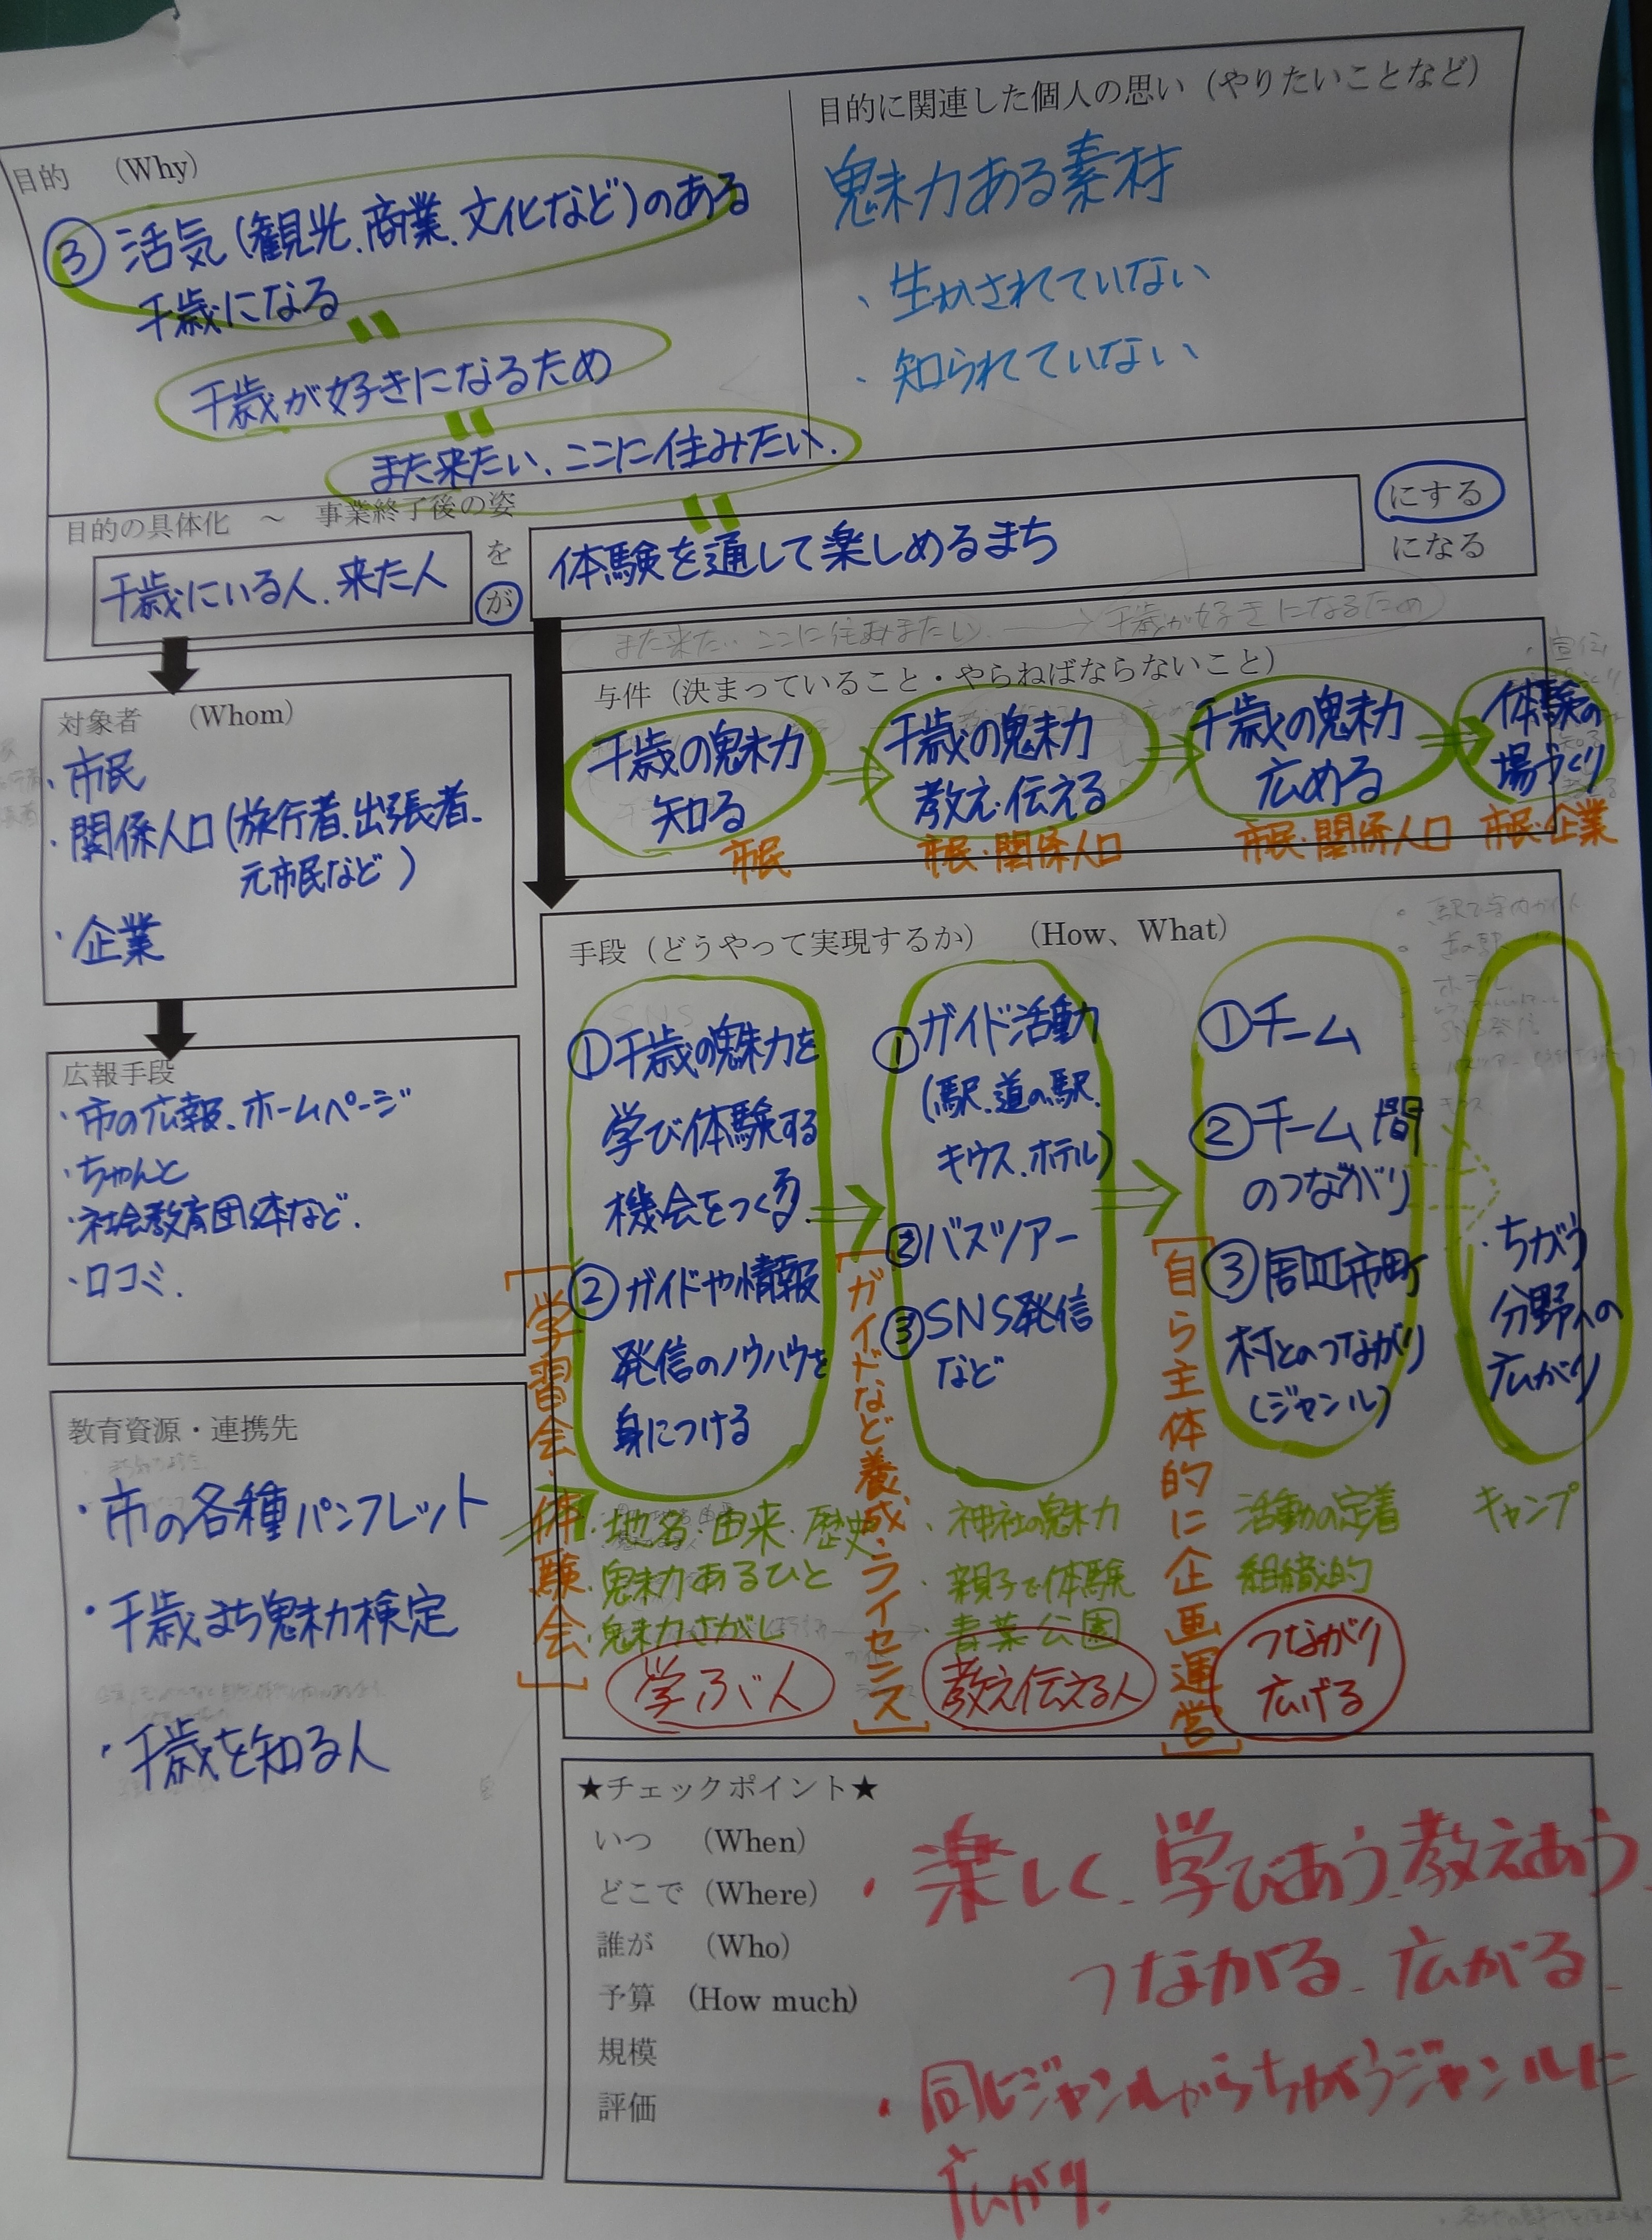 目的 （Why）
③ 活気(観光、商業、文化など)のある
千歳になる
千歳が好きになるため
また来たい、ここに住みたい.
目的に関連した個人の思い（やりたいことなど）
魅力ある素材
・生かされていない
・知られていない
目的の具体化 ～ 事業終了後の姿
千歳にいる人、来た人
を
が
体験を通して楽しめるまち
にする
になる
また来たい ここに住みたい → 千歳が好きになるため
対象者 （Whom）
・市民
・関係人口(旅行者、出張者、
元市民など)
・企業
与件（決まっていること・やらねばならないこと）
千歳の魅力
知る
市民
千歳の魅力
教え・伝える
市民・関係人口
千歳の魅力
広める
市民・関係人口
体験の
場づくり
市民・企業
広報手段
・市の広報、ホームページ
・ちゃんと
・社会教育団体など.
・口コミ.
教育資源・連携先
・市の各種パンフレット
・千歳まち魅力検定
・千歳を知る人
手段（どうやって実現するか） （How、What）
SNS
①千歳の魅力を
学び体験する
機会をつくる
②ガイドや情報
発信のノウハウを
身につける
[学習会・体験会]
・地名・由来・歴史
・魅力あるひと
・魅力さがし
学ぶ人
①ガイド活動
(駅、道の駅、
キウス、ホテル)
②バスツアー
③SNS発信
など
[ガイドなど養成・ライセンス]
・神社の魅力
・親子で体験
・青葉公園
教え伝える人
①チーム
②チーム間
のつながり
③周辺市町
村とのつながり
(ジャンル)
[自ら主体的に企画運営]
活動の定着
組織的
つながり
広げる
・ちがう
分野への
広がり
キャンプ
★チェックポイント★
いつ （When）
どこで（Where）
誰が （Who）
予算 （How much）
規模
評価
・楽しく、学びあう、教えあう、
つながる、広がる、
・同じジャンルからちがうジャンルに
広がり.